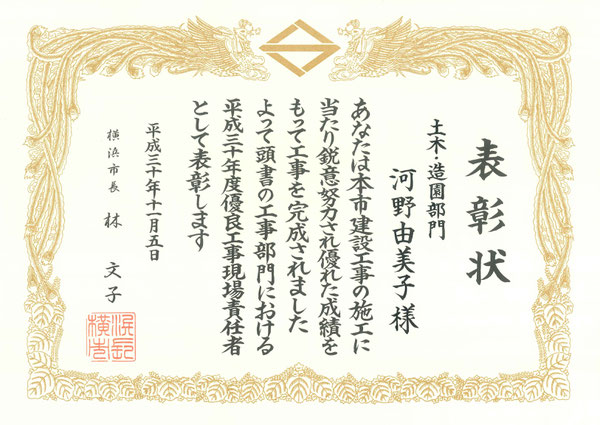 表彰状
土木・造園部門
河野由美子様
あなたは本市建設工事の施工に
当たり鋭意努力され優れた成績を
もって工事を完成されました
よって頭書の工事部門における
平成三十年度優良工事現場責任者
として表彰します
平成三十年十一月五日
横浜市長 林 文子